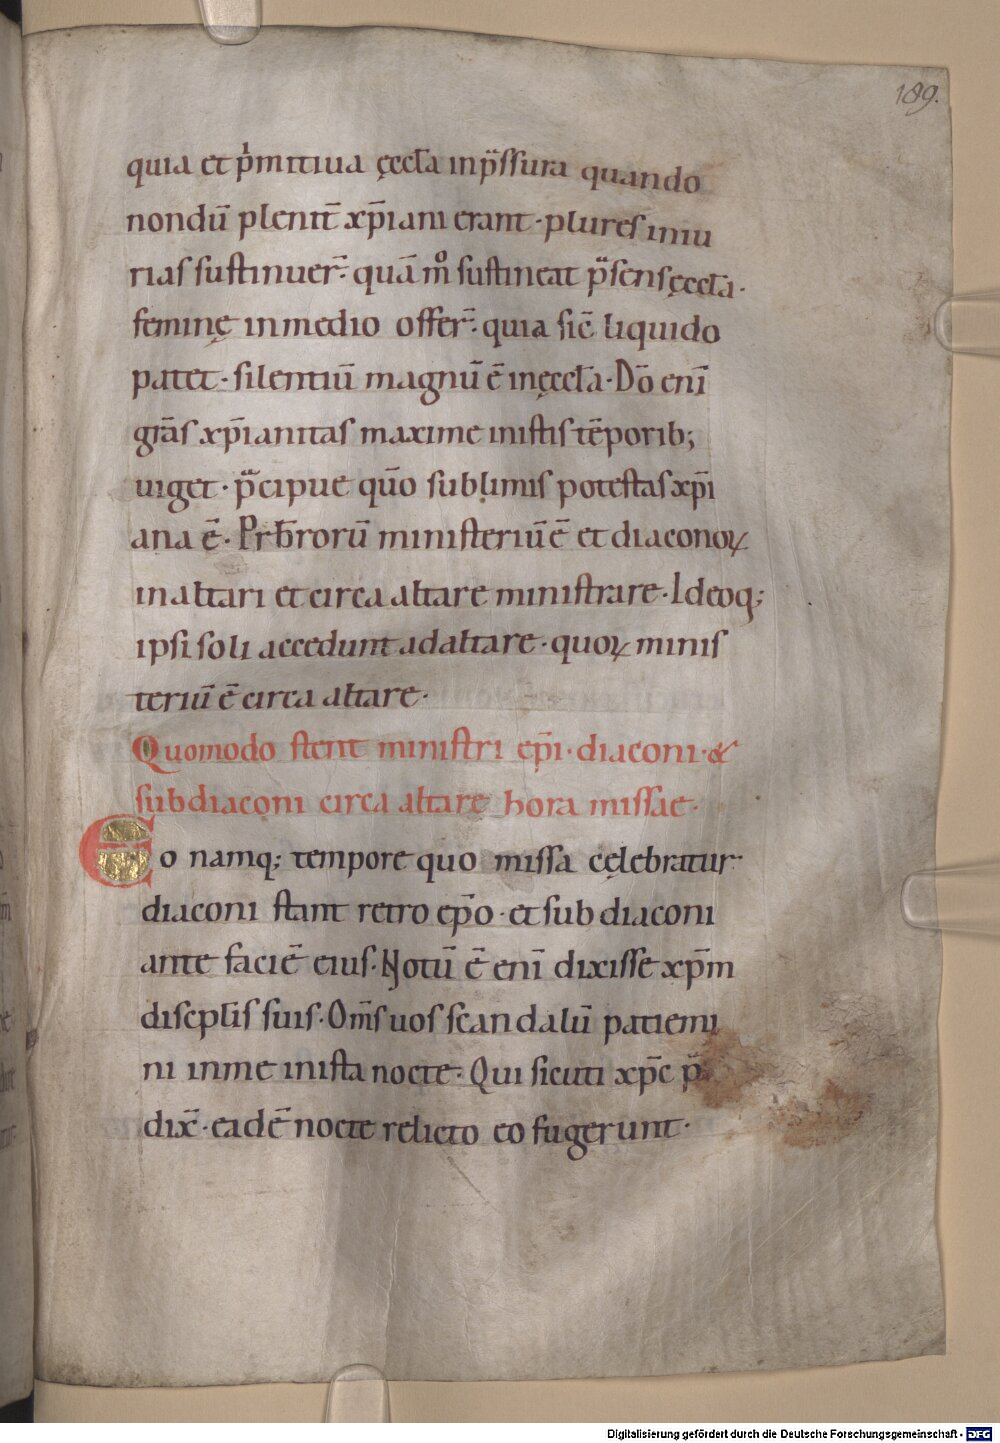 189.
quia et p̍mitiua ęccl̄a inp̄ſſura quando
nondū plenit̄ xp̄iani erant · plureſ iniu
riaſ ſuſtinuer̄ · quā m̊ ſuſtineat p̄ſenſ ęccl̄a ·
feminę in medio offer̄ · quia ſic̄ liquido
patet · ſilentiū magnū ē in ęccl̄a · Dō enī
gr̄aſ xp̄ianitaſ maxime in iſtiſ tēporib;
uiget · p̄cipue qūo ſublimiſ poteſtaſ xp̄i
ana ē · Prb̄rorū miniſteriū ē et diaconoꝝ
in altari et circa altare miniſtrare · Ideoq;
ipſi ſoli accedunt ad altare · quoꝝ miniſ
teriū ē circa altare ·
Quomodo ſtent miniſtri ep̄i · diaconi · &
ſubdiaconi circa altare hora miſſae ·
Eo namq; tempore quo miſſa cęlebratur
diaconi ſtant retro ep̄o · et ſubdiaconi
ante faciē eiuſ · Notū ē enī dixiſſe xp̄m
diſcipl̄iſ ſuiſ · Om̄ſ uoſ ſcandalū patiemi
ni in me in iſta nocte · Qui ſicuti xp̄c p̄
dix̄ · eadē nocte relicto eo fugerunt ·
Digitalisierung gefördert durch die Deutsche Forschungsgemeinschaft - DFG